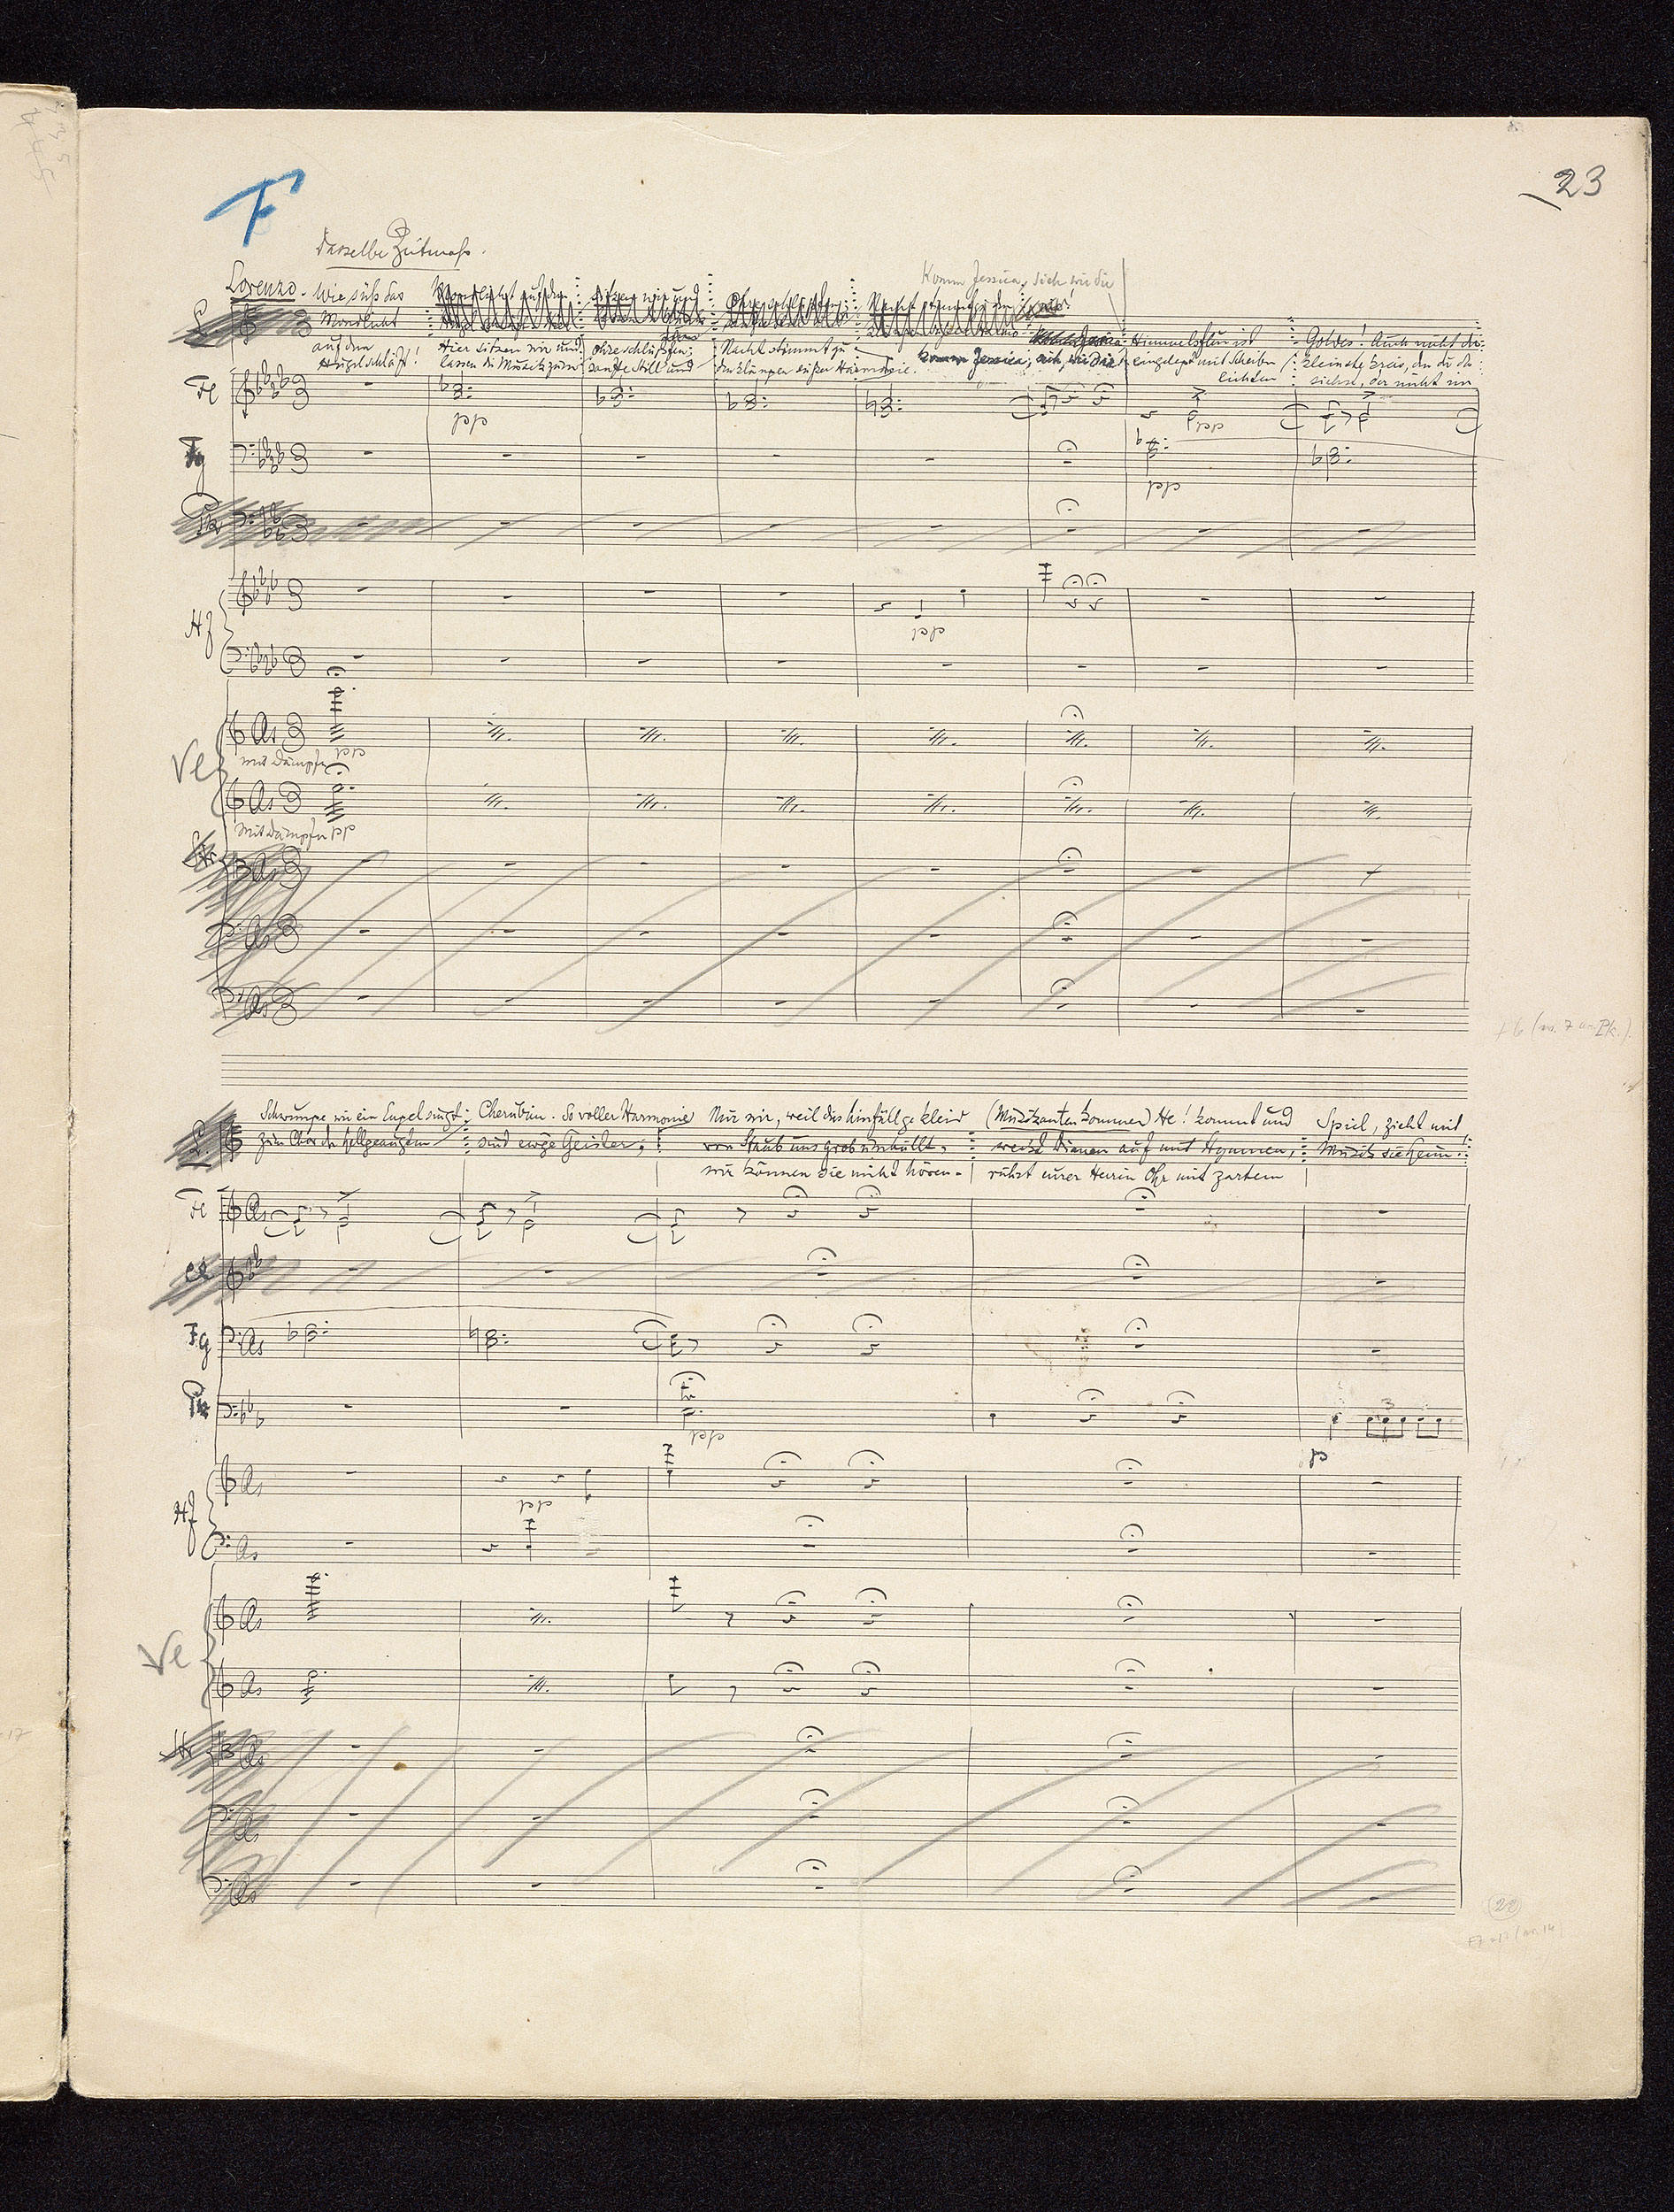 23
F
Dasselbe Zeitmass.
Komm Jessica, sieh, wie die
Lorenzo. Wie süß das
Mondlicht
auf dem
Hügel schläft!
Hier sitzen wir und
lassen die Musik zum
Ohre schlüpfen;
sanfte Still und
Nacht stimmt zu
den Klängen süßer Harmonie.
Komm Jessica, sieh, wie die
Himmelsflur ist
eingelegt mit Scheiben
lichten
Goldes! Auch nicht der
kleinste Kreis, den du da
siehst, der nicht im
L
Fl
pp
ppp
Fg
pp
Pk
Hf
pp
Ve
As
mit Dämpfer pp
As
Mit Dämpfer pp
Str
As
As
As
+ b (m. 7 Pk.)
Schwunge wie ein Engel singt
zum Chor der hellgeaugten
Cherubim. So voller Harmonie
sind ewge Geister,
Nur wir, weil dies hinfällge Kleid
von Staub uns grob umhüllt,
wir können sie nicht hören.
(Musikanten kommen) He! kommt und
weckt Dianen auf mit Hymnen,
rührt eurer Herrin Ohr mit zartem
Spiel, zieht mit
Musik sie heim.
L.
Fl
As
Cl
Fg
As
Pk
pp
3
p
Hf
As
pp
As
Ve
As
As
Str
As
As
As
22